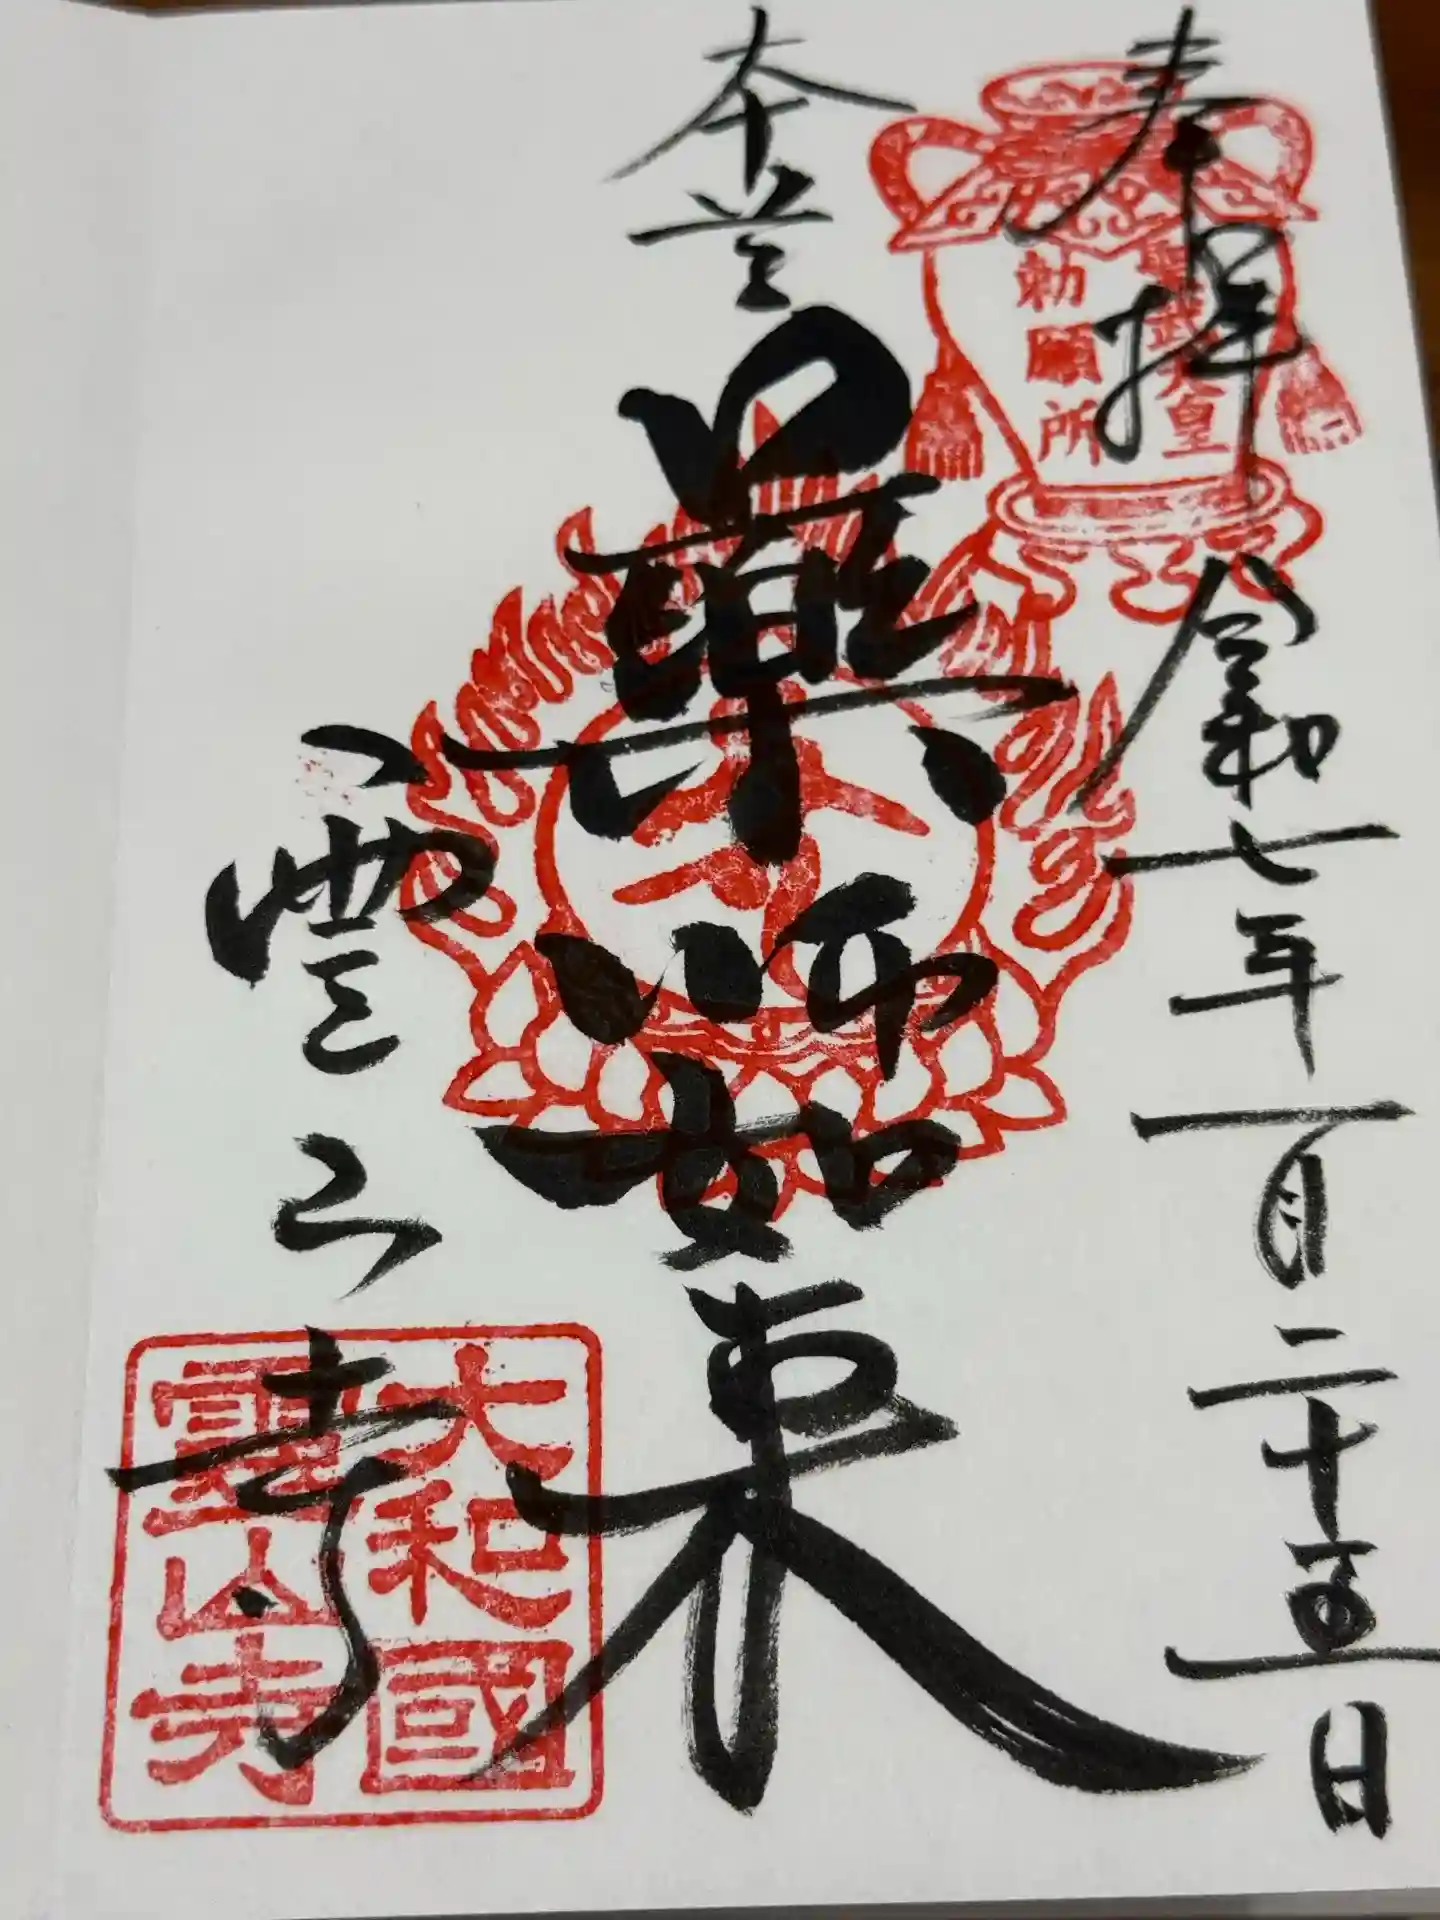 奉拝
令和七年一月二十五日
聖武天皇
勅願所
本尊
藥師如来
霊山寺
大和國
霊山寺